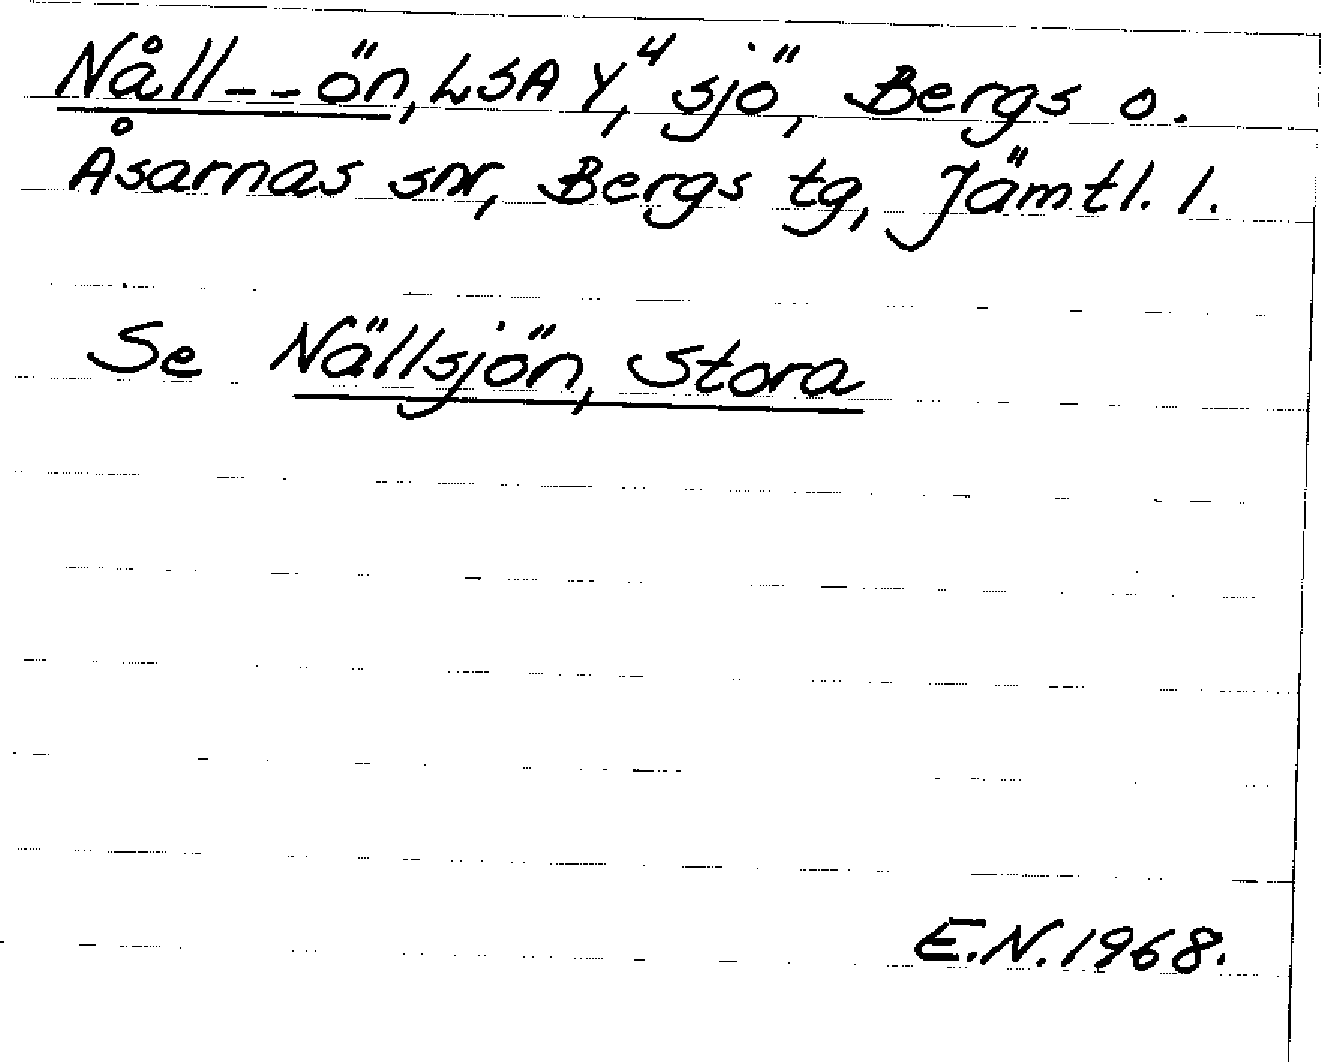 Nåll--ön, LSA Y,⁴ sjö, Bergs o.
Åsarnas snr, Bergs tg, Jämtl. l.
Se Nällsjön, Stora
E.N. 1968.